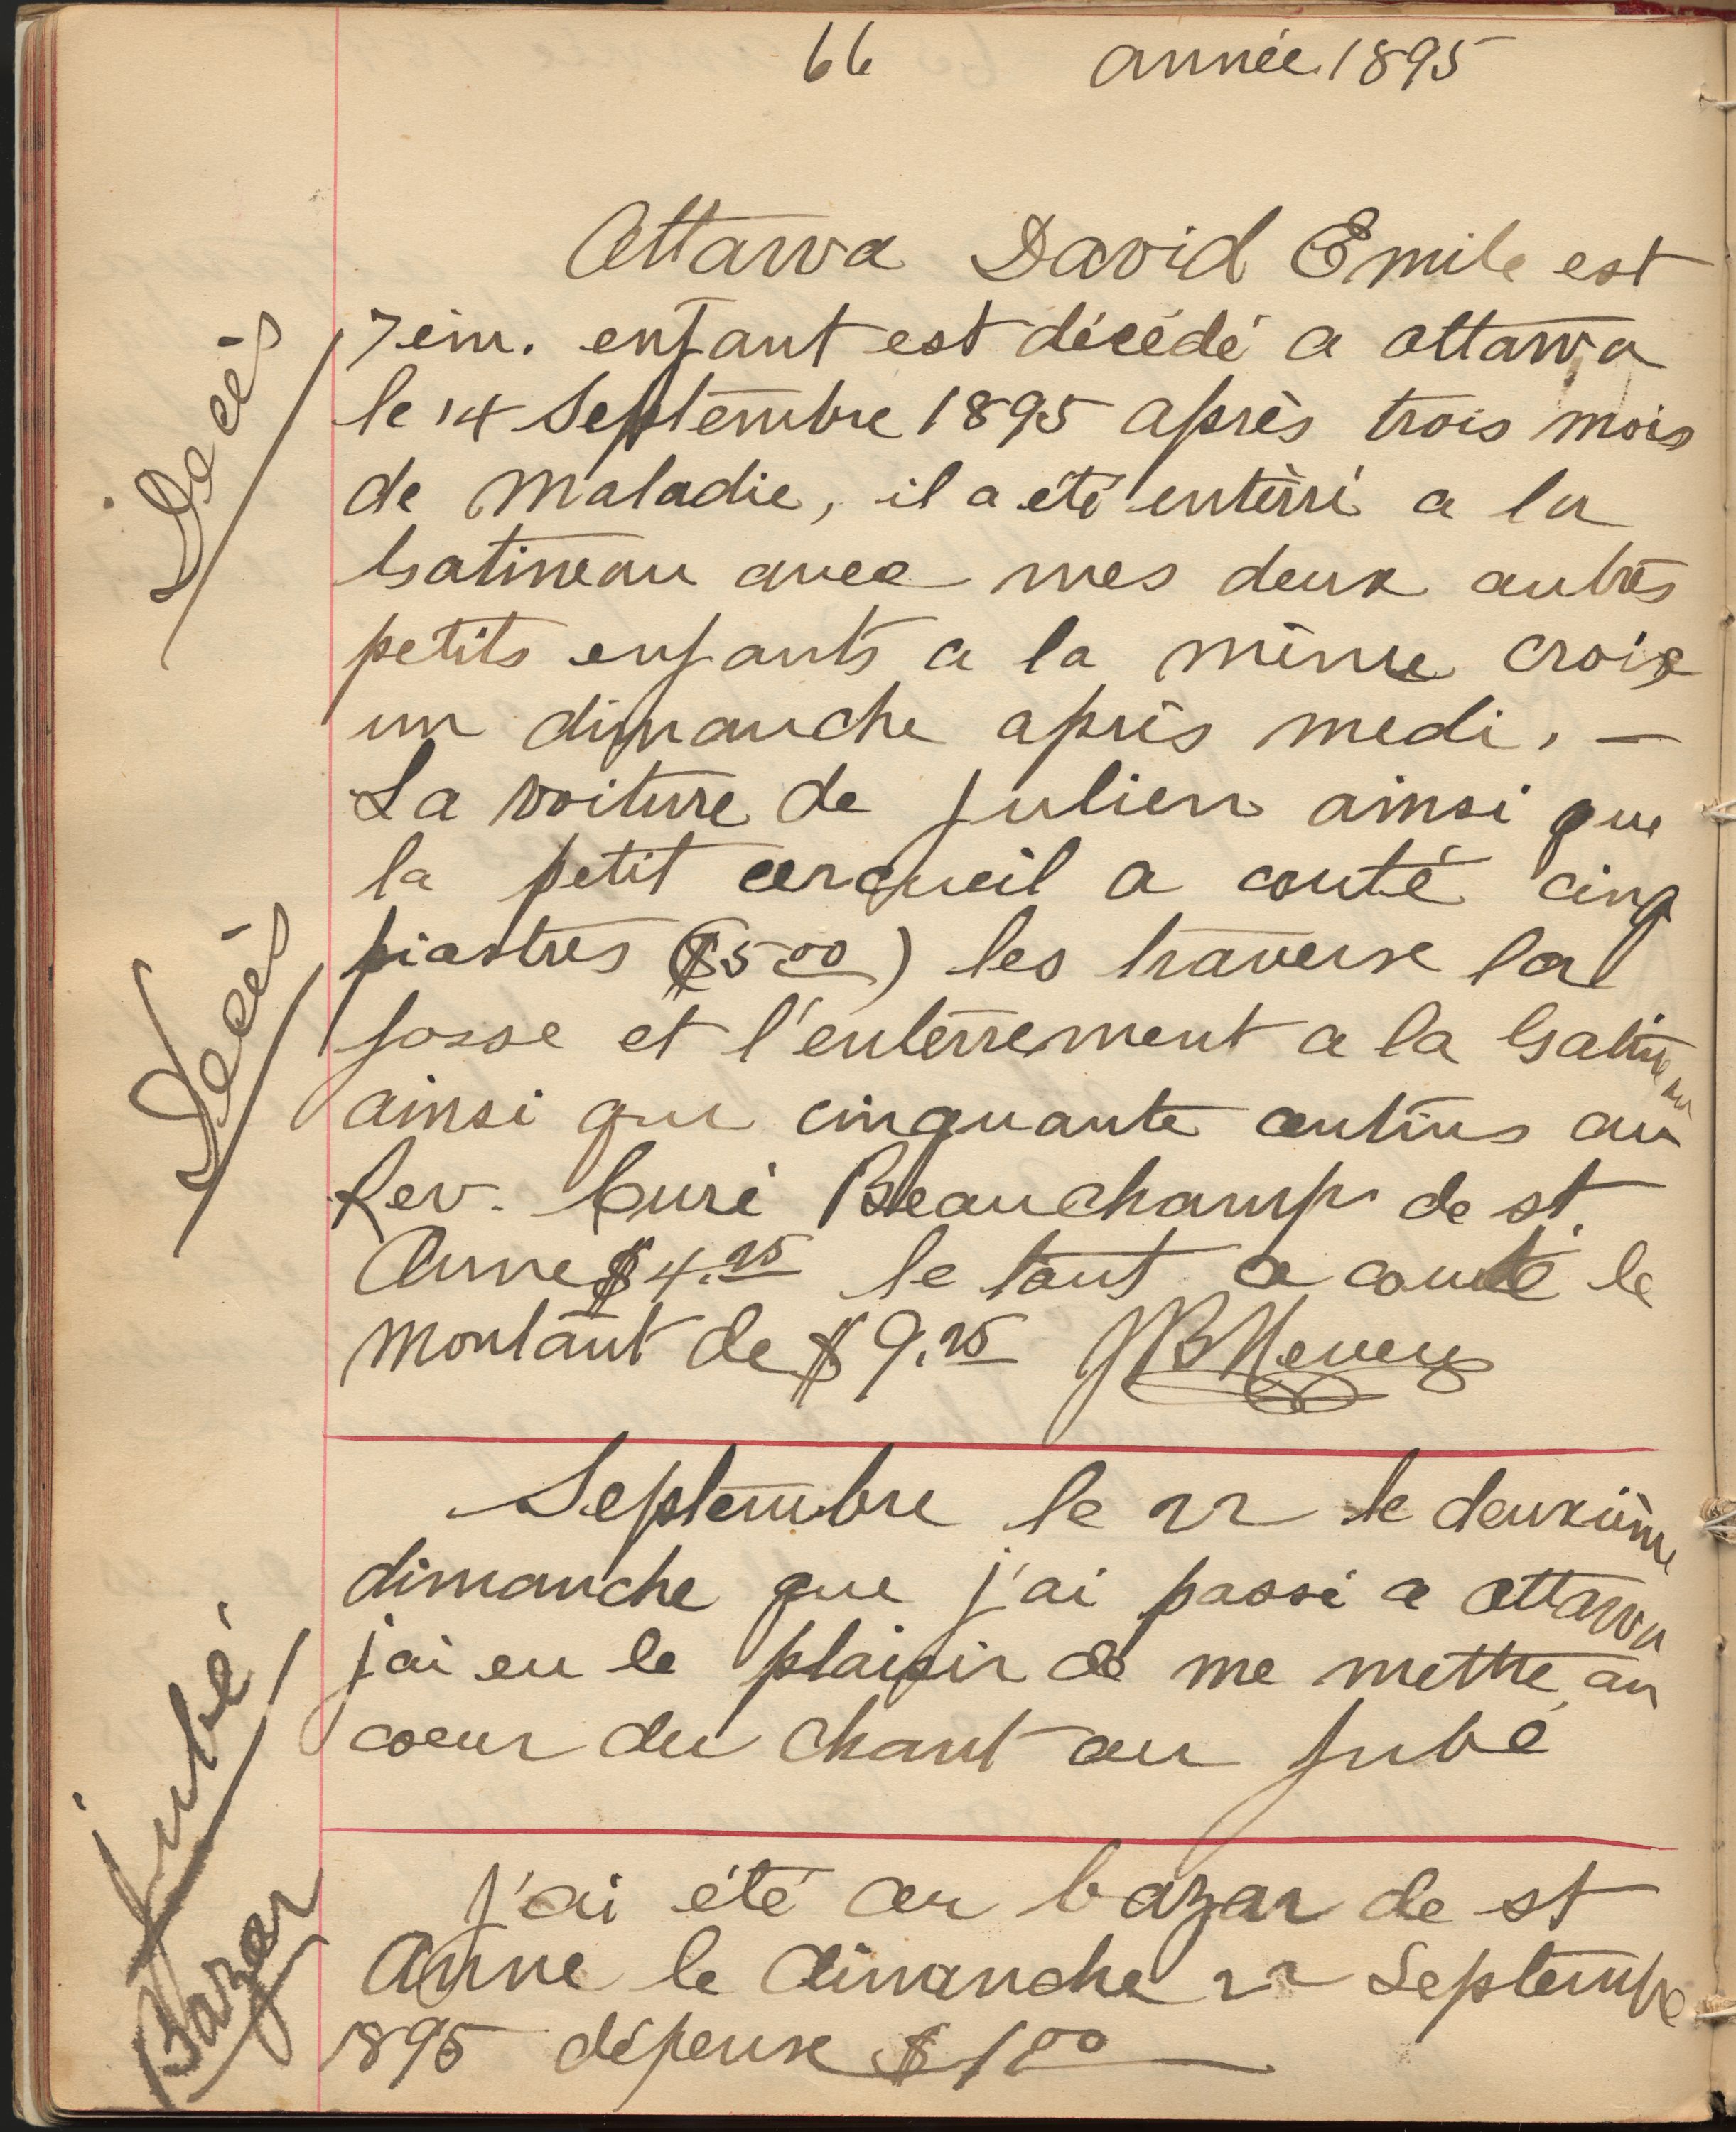 66 année 1895
Ottawa David Emile est
7em. enfant est décédé a ottawa
Décés
le 14 Septembre 1895 après trois mois
de Maladie, il a été entèrré a la
Gatineau avec mes deux autres
petits enfants a la même croix
un dimanche après medi. —
La voiture de Julien ainsi que
la petit cercueil a couté cinq
piastres ($5 00) les traverse la
Décés
fosse et l'enterrement a la Gatineau
ainsi que cinquante centins au
Rev. Curé Beauchamp de st.
Anne $4.25 le tout a couté le
montant de $9.25 JB
Septembre le 22 le deuxième
dimanche que j'ai passé a ottawa
j'ai eu le plaisir de me mettre au
coeur du chant au Jubé
Jubé
J'ai été au bazar de st
Anne le dimanche 22 Septembre
1895 dépense $1 00
Bazar